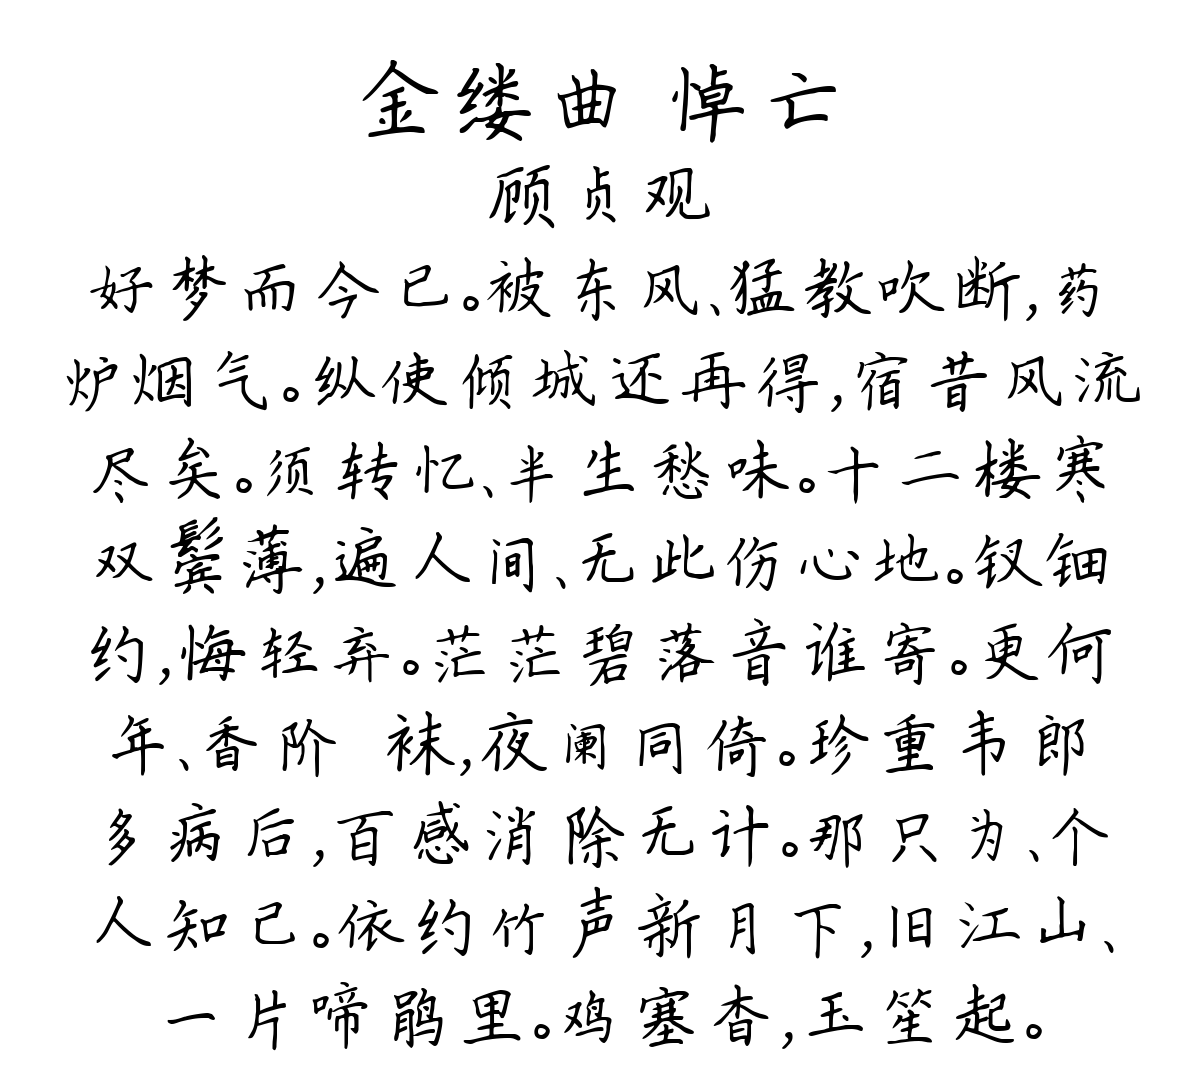 金缕曲 悼亡
顾贞观
好梦而今已。被东风、猛教吹断，药
炉烟气。纵使倾城还再得，宿昔风流
尽矣。须转忆、半生愁味。十二楼寒
双鬓薄，遍人间、无此伤心地。钗钿
约，悔轻弃。茫茫碧落音谁寄。更何
年、香阶 袜，夜阑同倚。珍重韦郎
多病后，百感消除无计。那只为、个
人知己。依约竹声新月下，旧江山、
一片啼鹃里。鸡塞杳，玉笙起。